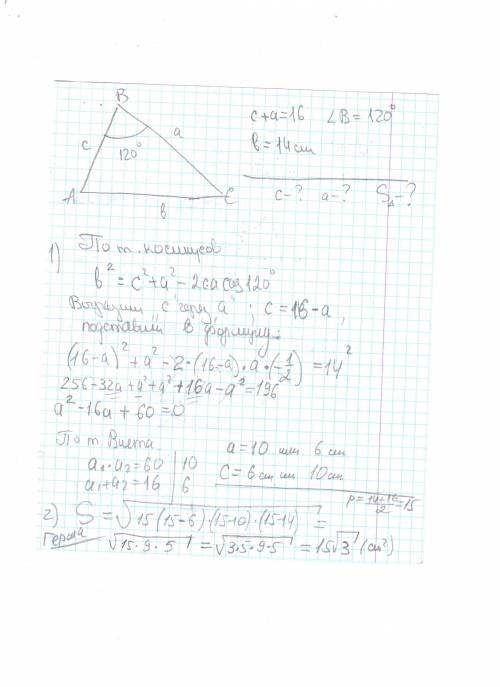 B
c+a=16 ∠B=120°
c a
120°
b=14 cm
A C
b
c-? a-? S△-?
1) По т. косинусов
b² = c²+a² - 2ca cos120°
Выразим "c" через "a" ; c = 16-a,
подставим в формулу:
(16-a)² + a² - 2·(16-a)·a·(-1/2) = 14²
256-32a+a²+a²+16a-a²=196
a²-16a+60=0
По т. Виета
a₁·a₂=60 | 10
a₁+a₂=16 | 6
a=10 или 6 см
c=6 см или 10 см
p=(14+16)/2=15
2) S=√15(15-6)(15-10)·(15-14) =
Герона √15·9·5 = √3·5·9·5 = 15√3 (см²)